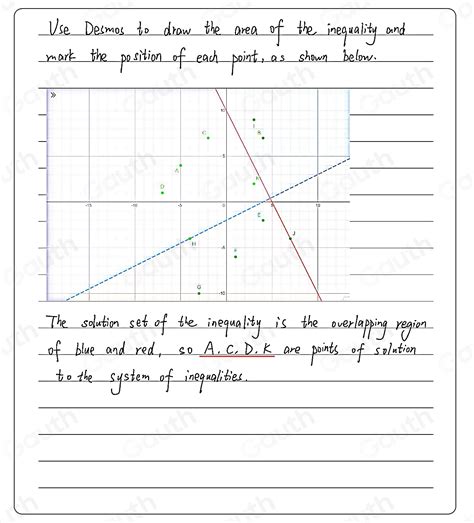 Use Desmos to draw the area of the inequality and
mark the position of each point, as shown below.
»
10
I
C
B
5
A
K
D
-15
-10
-5
5
10
E
H
-5
J
F
G
-10
The solution set of the inequality is the overlapping region
of blue and red, so A. C. D. K are points of solution
to the system of inequalities.
Gauth